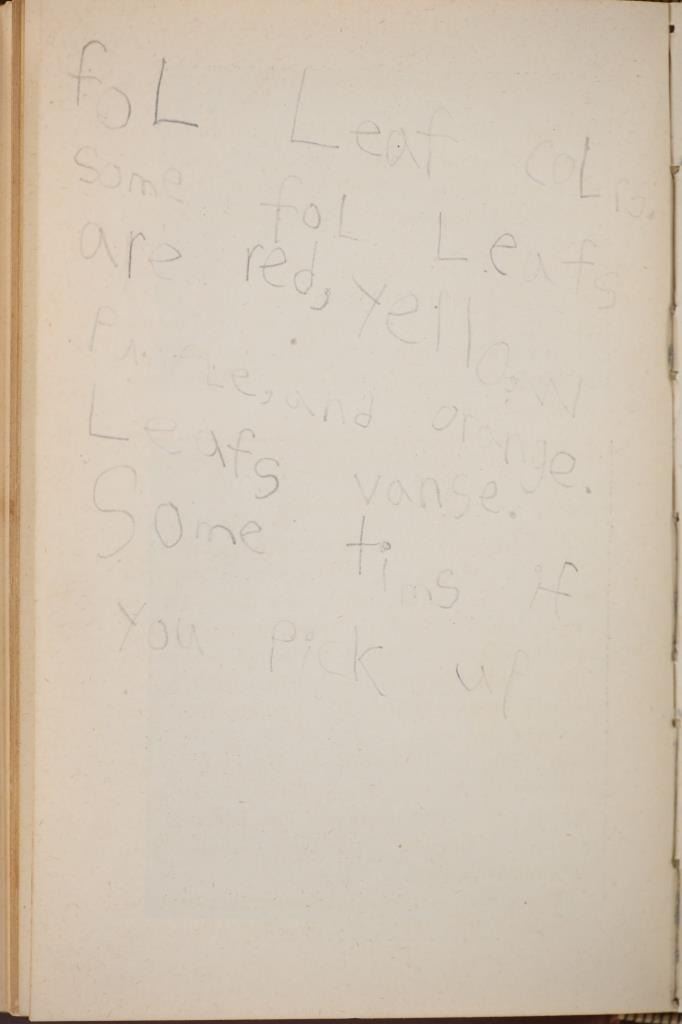 foL Leaf coLro.
some foL Leafs
are red, yellow
PurPLe, and orange.
Leafs vanse.
Some tims if
you Pick up